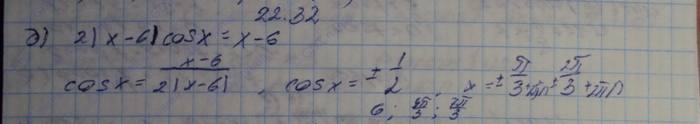 22.32
д) 2|x-6|cosx = x-6
cosx = x-6 / 2|x-6| , cosx = ± 1/2 x = ± 5π/3 + 2πn ± 2π/3 + 2πn
6; 5π/3; 2π/3